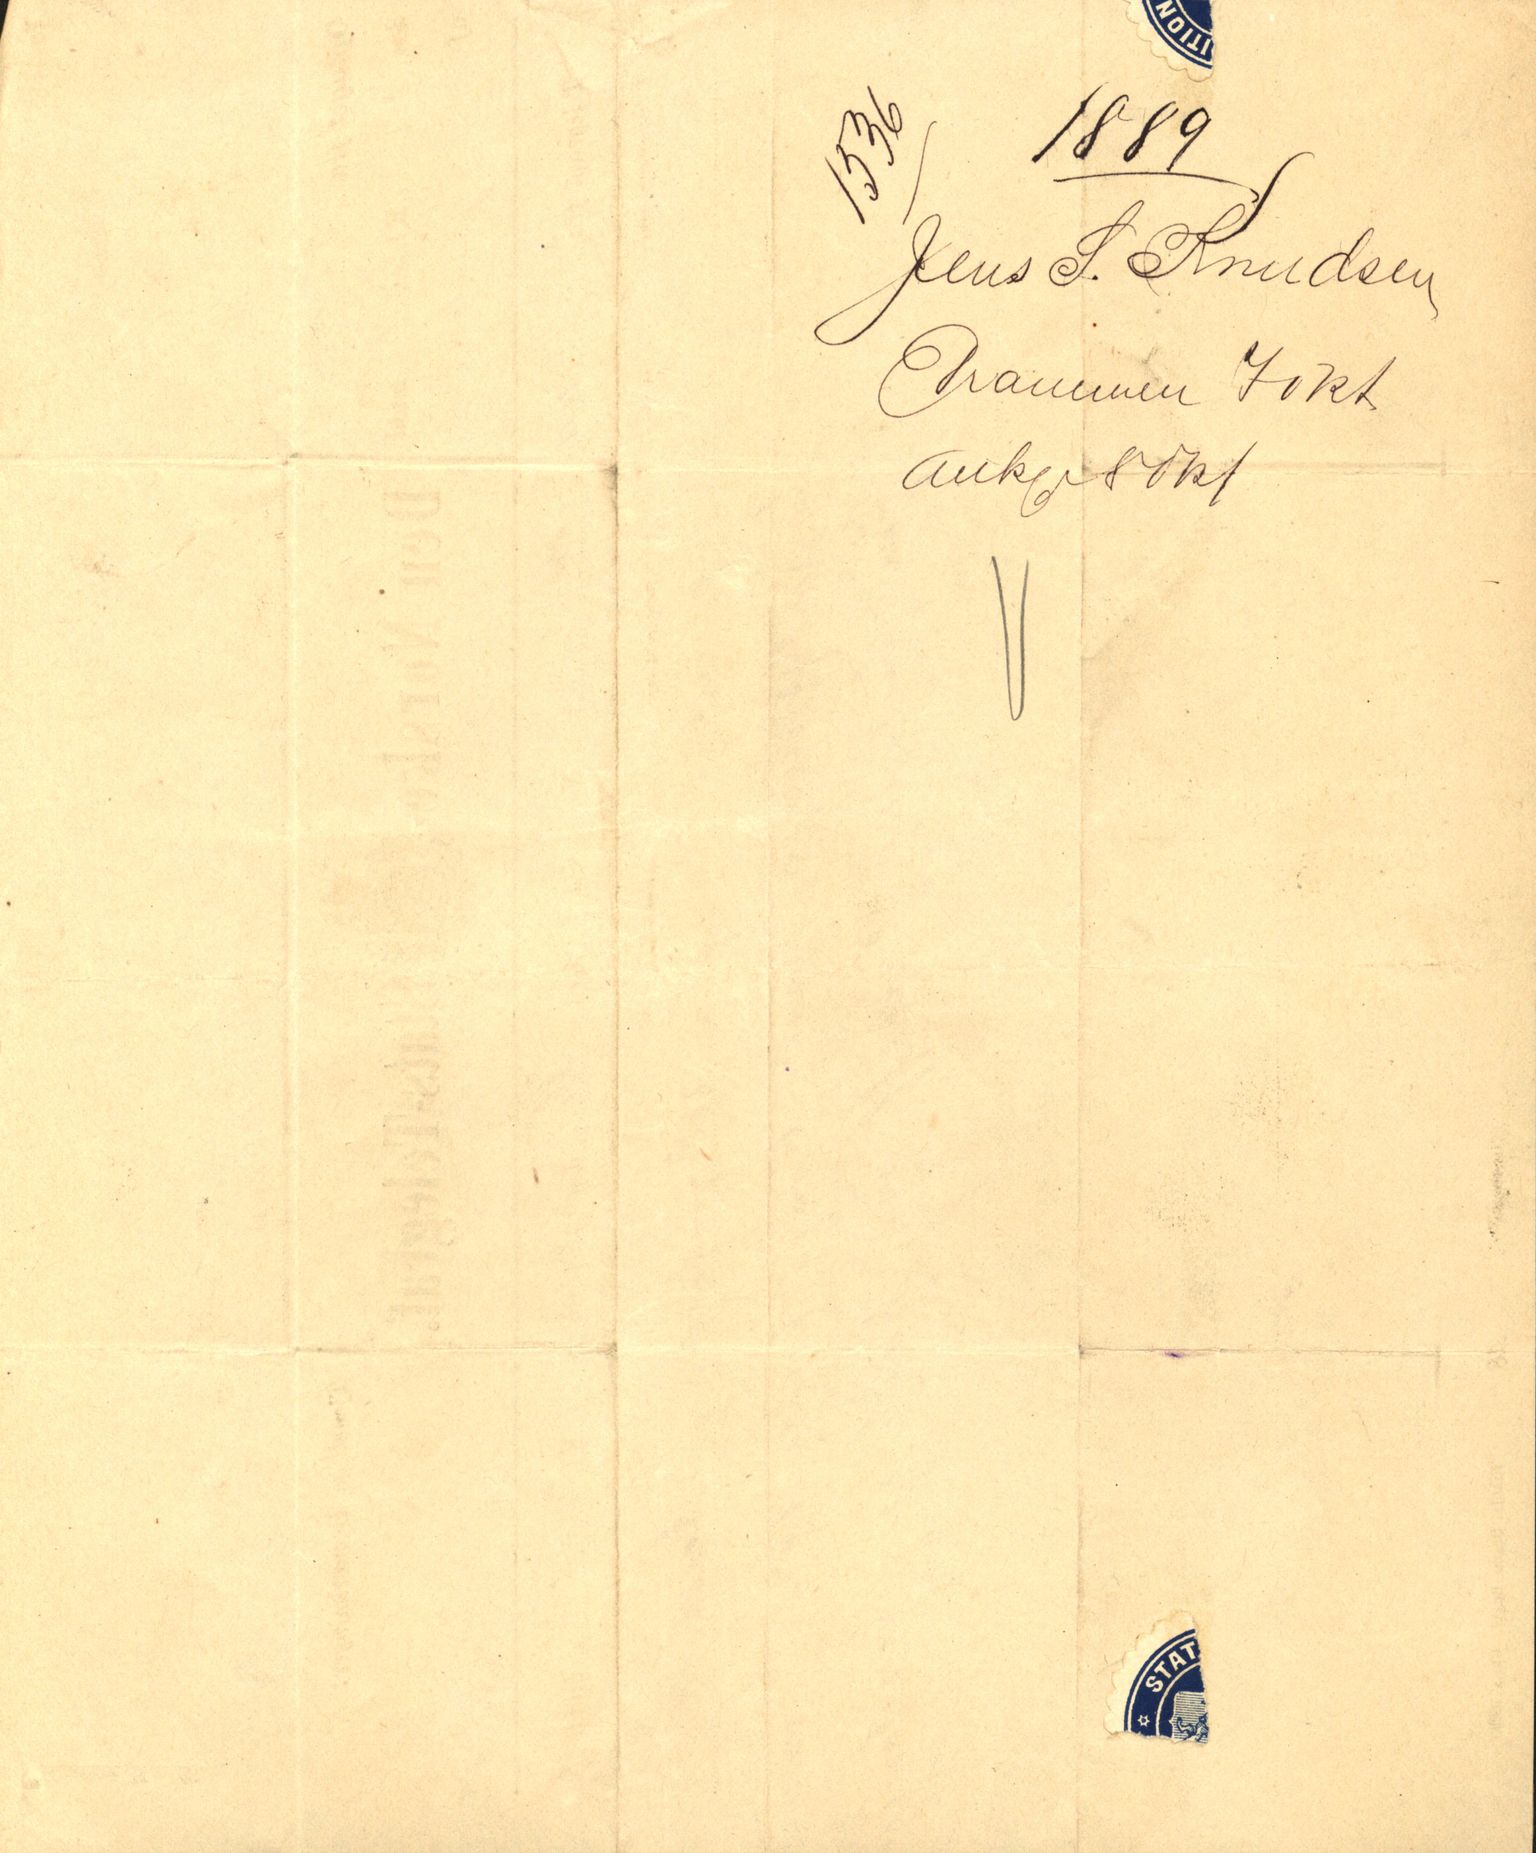 ITION
1889
1536
Jens S. Knudsen
Drammen 7 okt
ank 8 okt
STAT